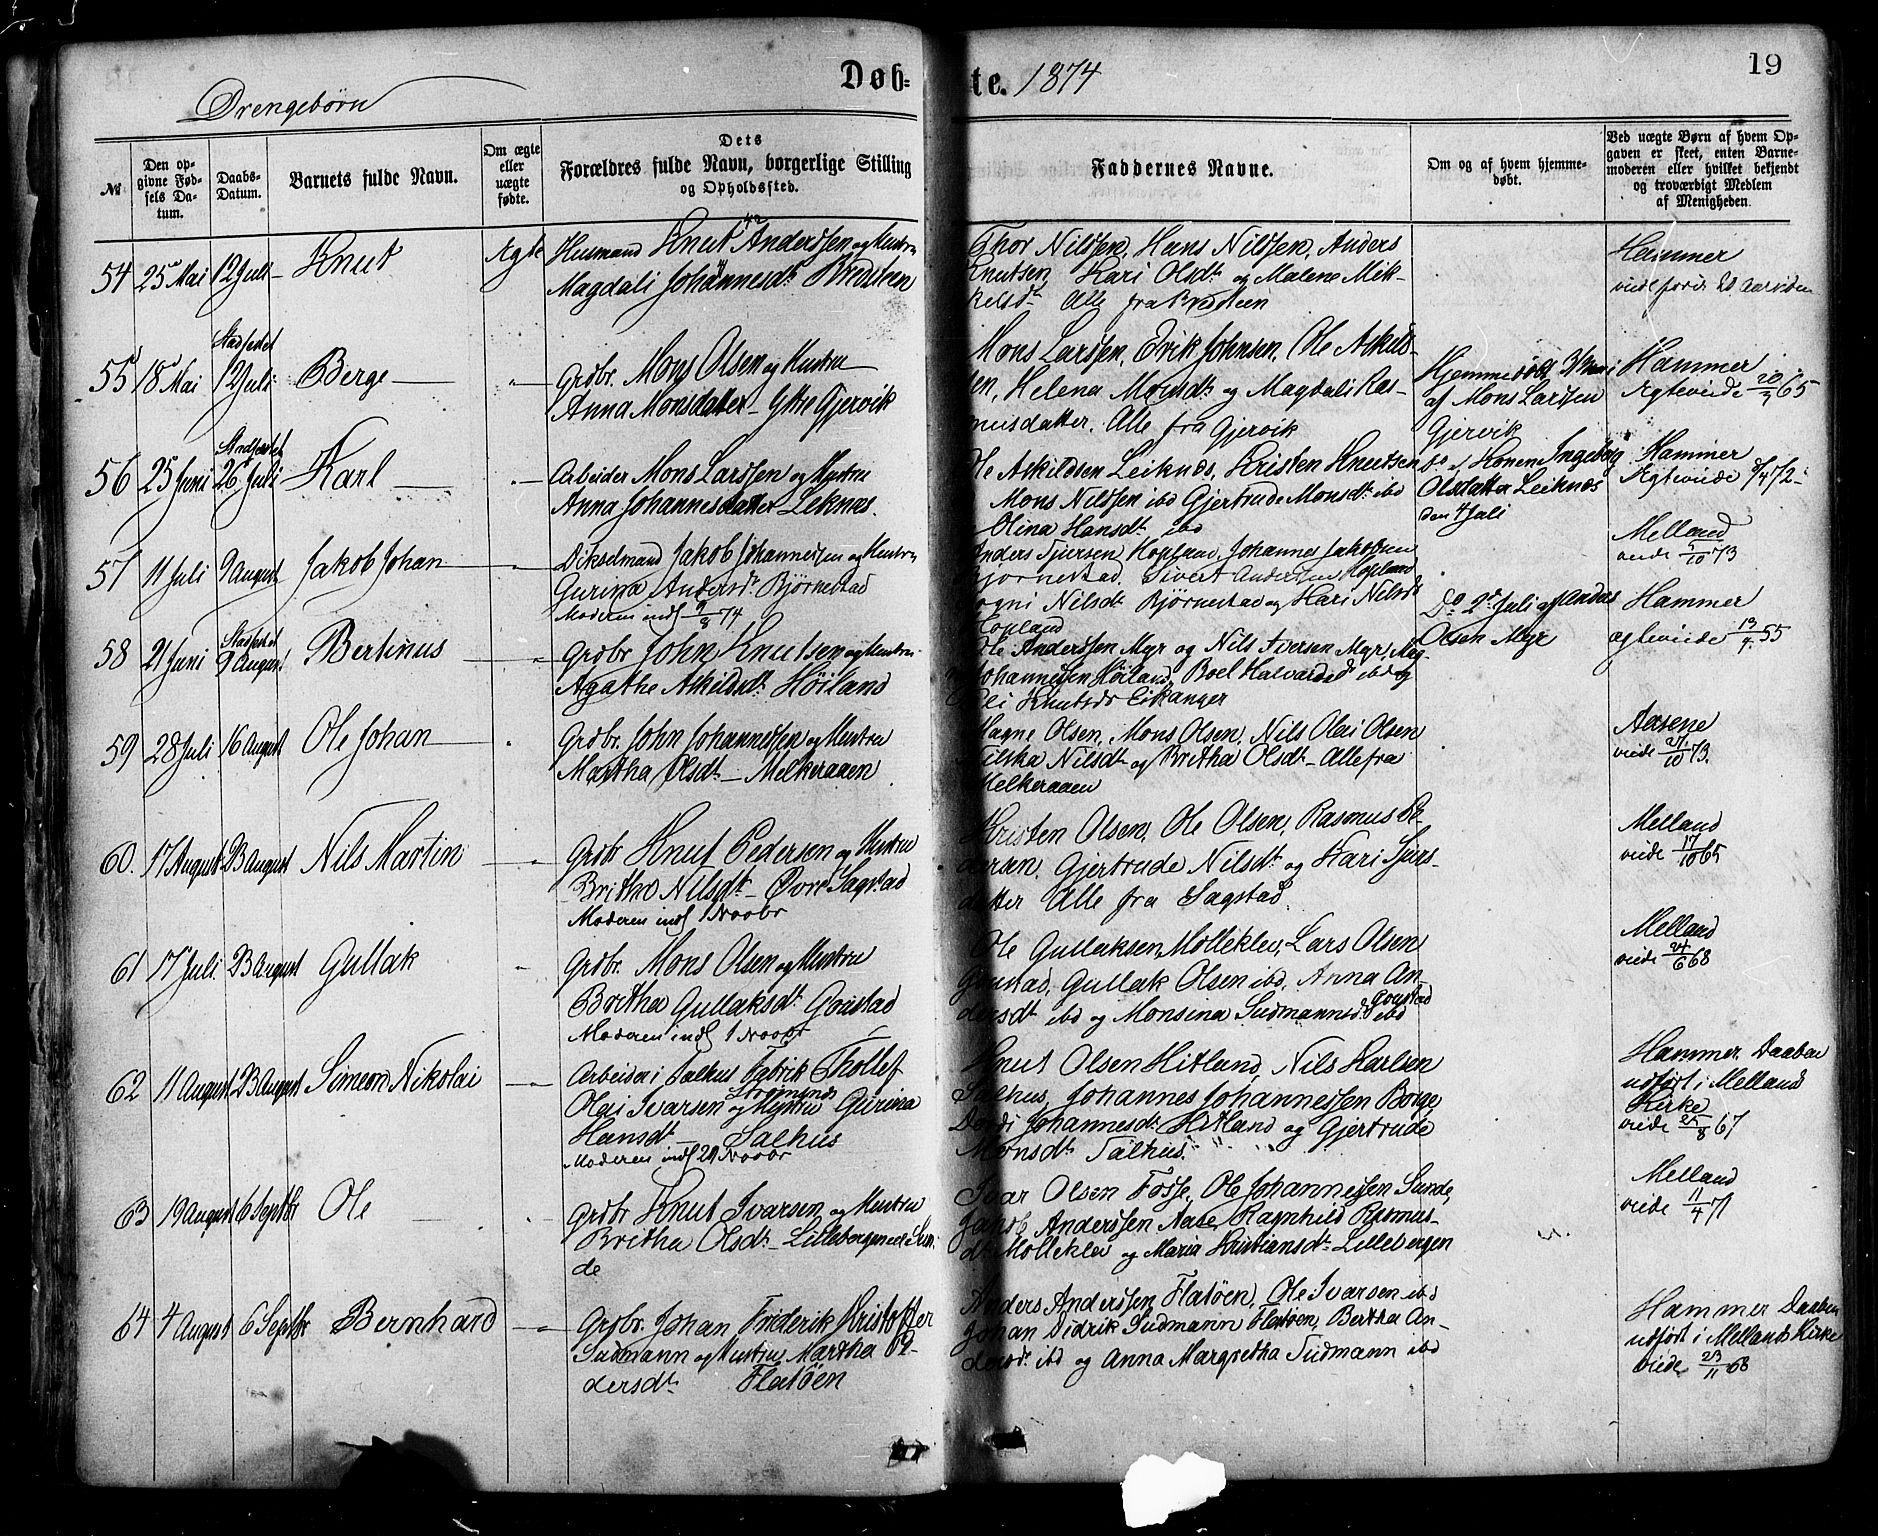 Døb= te. 1874
19
Drengebørn
№
Den op=
givne Fød=
sels Da=
tum.
Daabs=
Datum.
Barnets fulde Navn.
Om ægte
eller
uægte
fødte.
Dets
Forældres fulde Navn, borgerlige Stilling
og Opholdssted.
Faddernes Navne.
Om og af hvem hjemme=
døbt.
Ved uægte Børn af hvem Op=
gaven er skeet, enten Barne=
moderen eller hvilket bekjendt
og troværdigt Medlem
af Menigheden.
54 25 Mai 12 Juli Knut Ægte Husmand Knut Anderssen og Hustru
Magdali Johannesdt Bredsteen
Thor Nilssen, Hans Nilssen, Anders
Knutsen, Kari Olsdt og Malene Mik-
kelsdt Alle fra Bredsteen
Hammer
55 18 Mai Stadfestet 12 Juli Berge — " Grdbr. Mons Olsen og Hustru
Anna Monsdatter Ytre Gjervik
Mons Larssen, Erik Johnsen, Ole Askild-
sen, Helena Monsdt og Magdali Ras-
musdatter. Alle fra Gjervik
Hjemmedøbt 31 Mai
af Mons Larssen
Gjervik
Hammer
Ægteviede 65
56 25 Juni Stadfestet 26 Juli Karl — " Arbeider Mons Larssen og Hustru
Anna Johannesdatter Leknes.
Ole Askildsen Leiknes, Kristen Knutsen
Mons Nilssen ibd Gjertrude Monsdt ibd
Olina Hansdt ibd
Do af Konene Ingeborg
Olsdatter Leiknes
den 4 Juli
Hammer
Ægteviede 72
57 11 Juli 9 August Jakob Johan — " Jakob Johannessen og Hustru
Gurina Andersdt Bjørnestad
Moderen indl 9/8 74
Anders Hopland, Johannes Jakobsen
Bjørnestad, Sivert Anderssen Hopland
Nilsdt Bjørnestad og Kari Nilsdt
Hopland
Melland
viede 73
58 21 Juni Stadfestet 9 August Bertinus — " Grdbr John Knutsen og Hustru
Agathe Askildsdt Høiland
Ole Anderssen Myr og Nils Iversen Myr,
Johannessen Høiland, Boel Halvardsdt ibd og
Knutsdt Eikanger
Do 2 Juli af Anders
Olsen Myr
Hammer
ægteviede 13/7 55
59 28 Juli 16 August Ole Johan — " Grdbr. John Johannessen og Hustru
Martha Olsdt — Melkeraaen
Magne Olsen, Mons Olsen, Nils Olai Olsen
Nilska Nilsdt og Britha Olsdt — Alle fra
Melkeraaen
Aasene
viede 73.
60. 17 August 23 August Nils Martin — " Grdbr Knut Pedersen og Hustru
Britha Nilsdt — Øvre Sagstad
Moderen indl 1 Novbr
Kristen Olsen, Ole Olsen, Rasmus Pe-
dersen, Gjertrude Nilsdt og Kari Sjurs-
datter Alle fra Sagstad
Melland
viede 17/10 65
61 17 Juli 23 August Gullak " Grdbr. Mons Olsen og Hustru
Britha Gullaksdt Goustad
Moderen indl 1 Novbr
Ole Gullaksen Mølleklev, Lars Olsen
Goustad, Gullak Olsen ibd, Anna An-
dersdt ibd og Monsina Sudmannsdt Goustad ibd
Melland
viede 24/6 68
62 11 August 23 August Simeon Nikolai — " Arbeider i Salhus Fabrik Thollef
Olai Ivarsen Strømsnes og Hustru Gurina
Hansdt — Salhus
Moderen indl 20 Novbr
Knut Olsen Hitland, Nils Karlsen
Salhus, Johannes Johannessen Borge,
Dordi Johannesdt Hitland og Gjertrude
Monsdt Salhus.
Hammer, Daaben
udført i Mellands
Kirke
viede 25/8 67
63 19 August 6 Septbr Ole — " Grdbr Knut Ivarsen og Hustru
Britha Olsdt — Lillebergen i Sun-
de
Ivar Olsen Fosse, Ole Johannessen Sunde,
Jakob Anderssen Aase, Ragnhild Rasmus-
dt Mølleklev og Maria Kristiansdt Lillebergen
Melland
viede 11/4 71
64 4 August 6 Septbr Bernhard — " Grdbr. Johan Fridrik Kristoffer
Sudmann og Hustru Martha An-
dersdt Flatøen
Anders Anderssen Flatøen, Ole Ivarsen ibd
Johan Didrik Sudmann Flatøen, Bertha An-
dersdt ibd og Anna Margretha Sudmann ibd
Hammer Daaben
udført i Mellands Kirke
viede 23/11 68